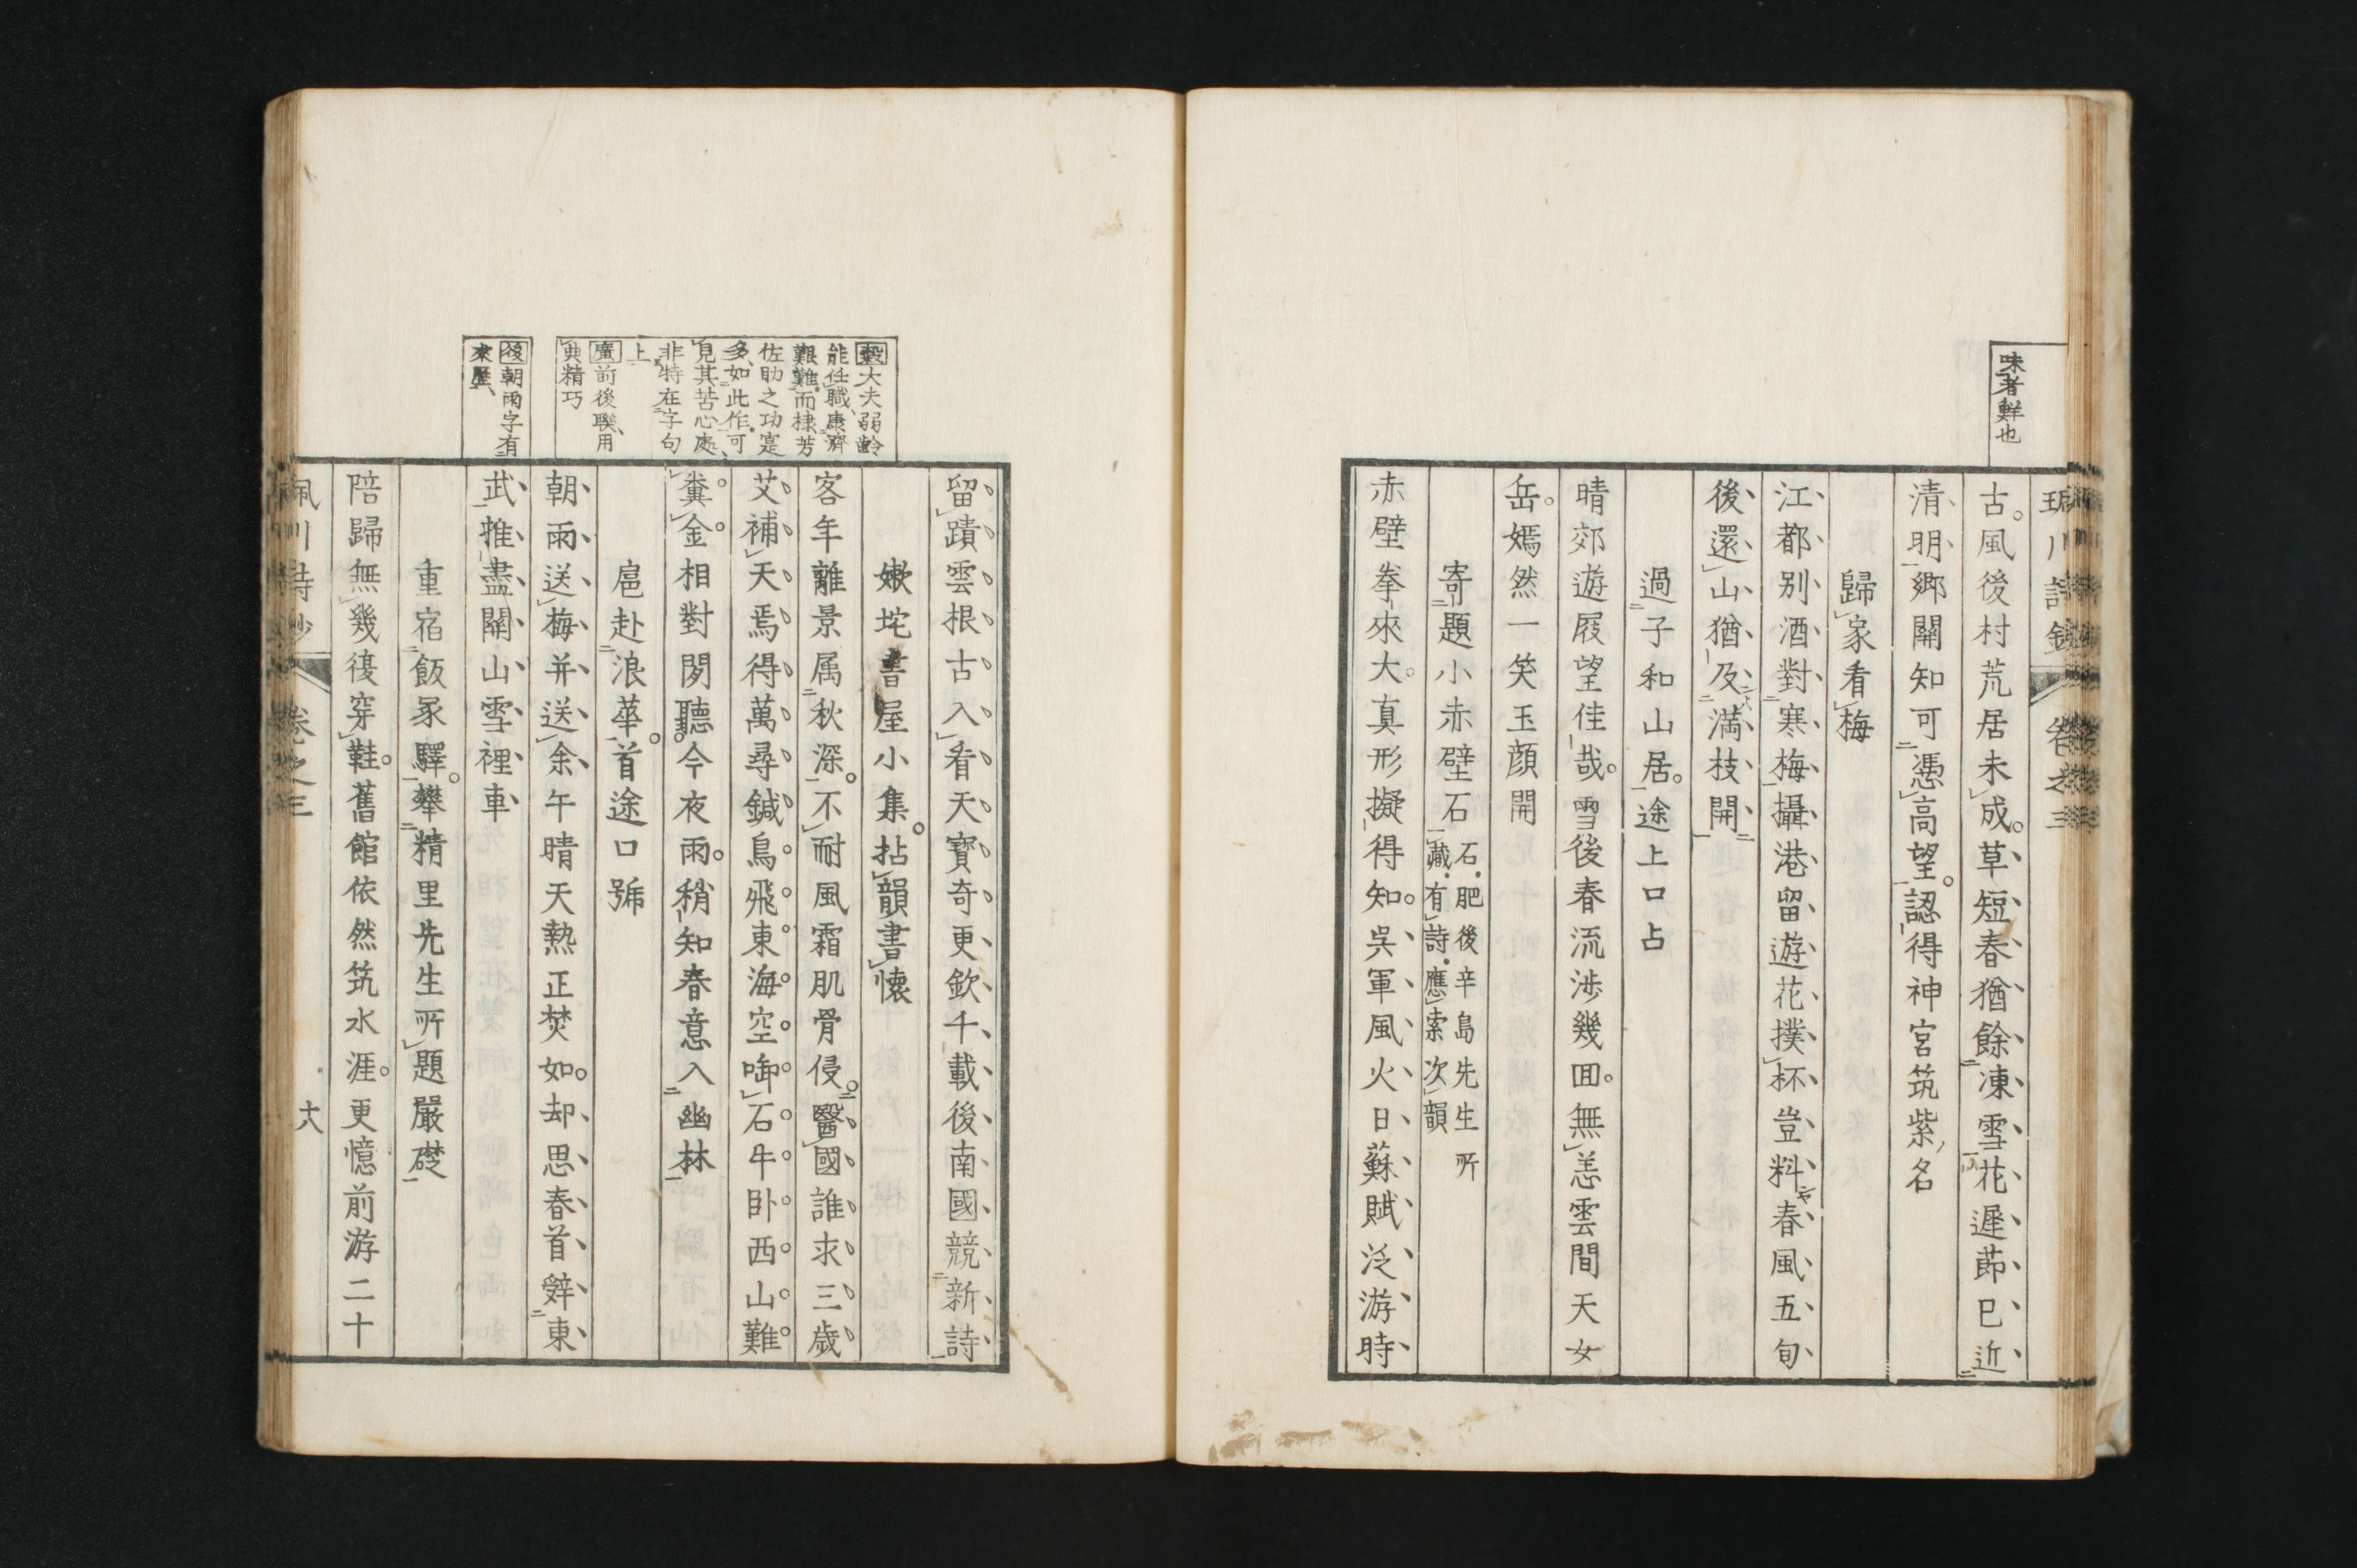 味者鮮也
古風後村荒居未成草短春猶餘凍雪花遲節已近
清明鄉關知可憑高望認得神宮筑紫名
歸家看梅
江都別酒對寒梅攝港留遊花撲杯豈料春風五旬
後還山猶及滿枝開
過子和山居途上口占
晴郊遊屐望佳哉雪後春流涉幾回無恙雲間天女
岳嫣然一笑玉顔開
寄題小赤壁石石肥後辛島先生所
藏有詩應索次韻
赤壁拳來大真形擬得知吳軍風火日蘇賦泛游時
穀大夫弱齡
能任職康濟
艱難而棣芳
佐助之功寔
多如此作可
見其苦心處
非特在字句
上
廣前後聯用
典精巧
後朝雨字有
來歷
留蹟雲根古入看天寶奇更欽千載後南國競新詩
嫩坨書屋小集拈韻書懷
客年離景属秋深不耐風霜肌骨侵醫國誰求三歲
艾補天焉得萬尋鍼鳥飛東海空啣石牛卧西山難
糞金相對閔聽今夜雨稍知春意入幽林
扈赴浪華首途口號
朝雨送梅并送余午晴天熱正焚如却思春首辭東
武推盡關山雪裡車
重宿飯冢驛攀精里先生所題嚴礎
陪歸無幾復穿鞋舊館依然筑水涯更憶前游二十
卷之三
十八